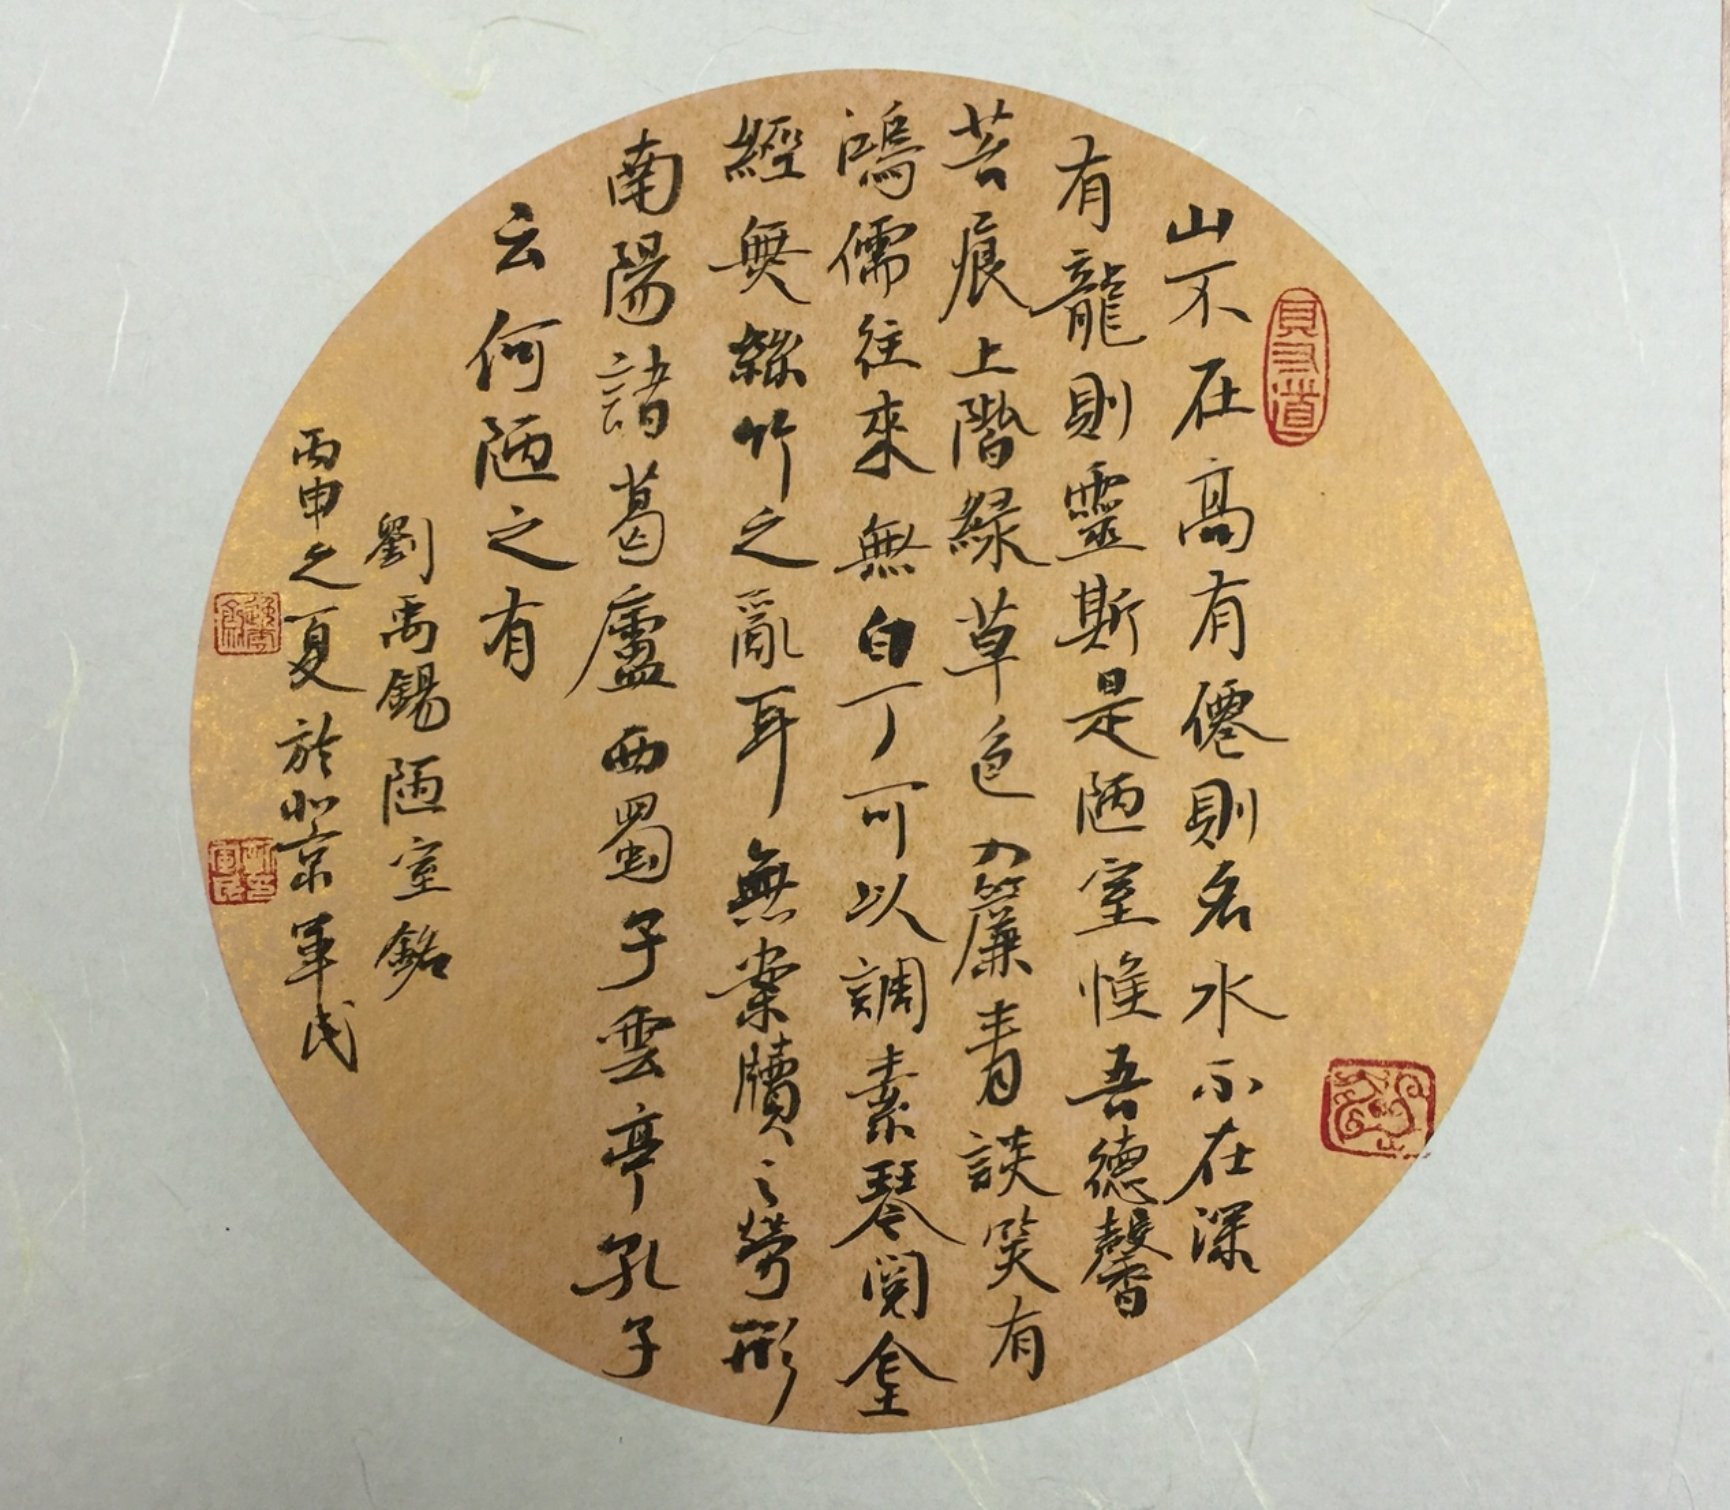 山不在高有僊則名水不在深
有龍則靈斯是陋室惟吾德馨
苔痕上階綠草色入簾青談笑有
鴻儒往來無白丁可以調素琴閱金
經無絲竹之亂耳無案牘之勞形
南陽諸葛廬西蜀子雲亭孔子
云何陋之有
劉禹錫陋室銘
丙申之夏於北京軍民